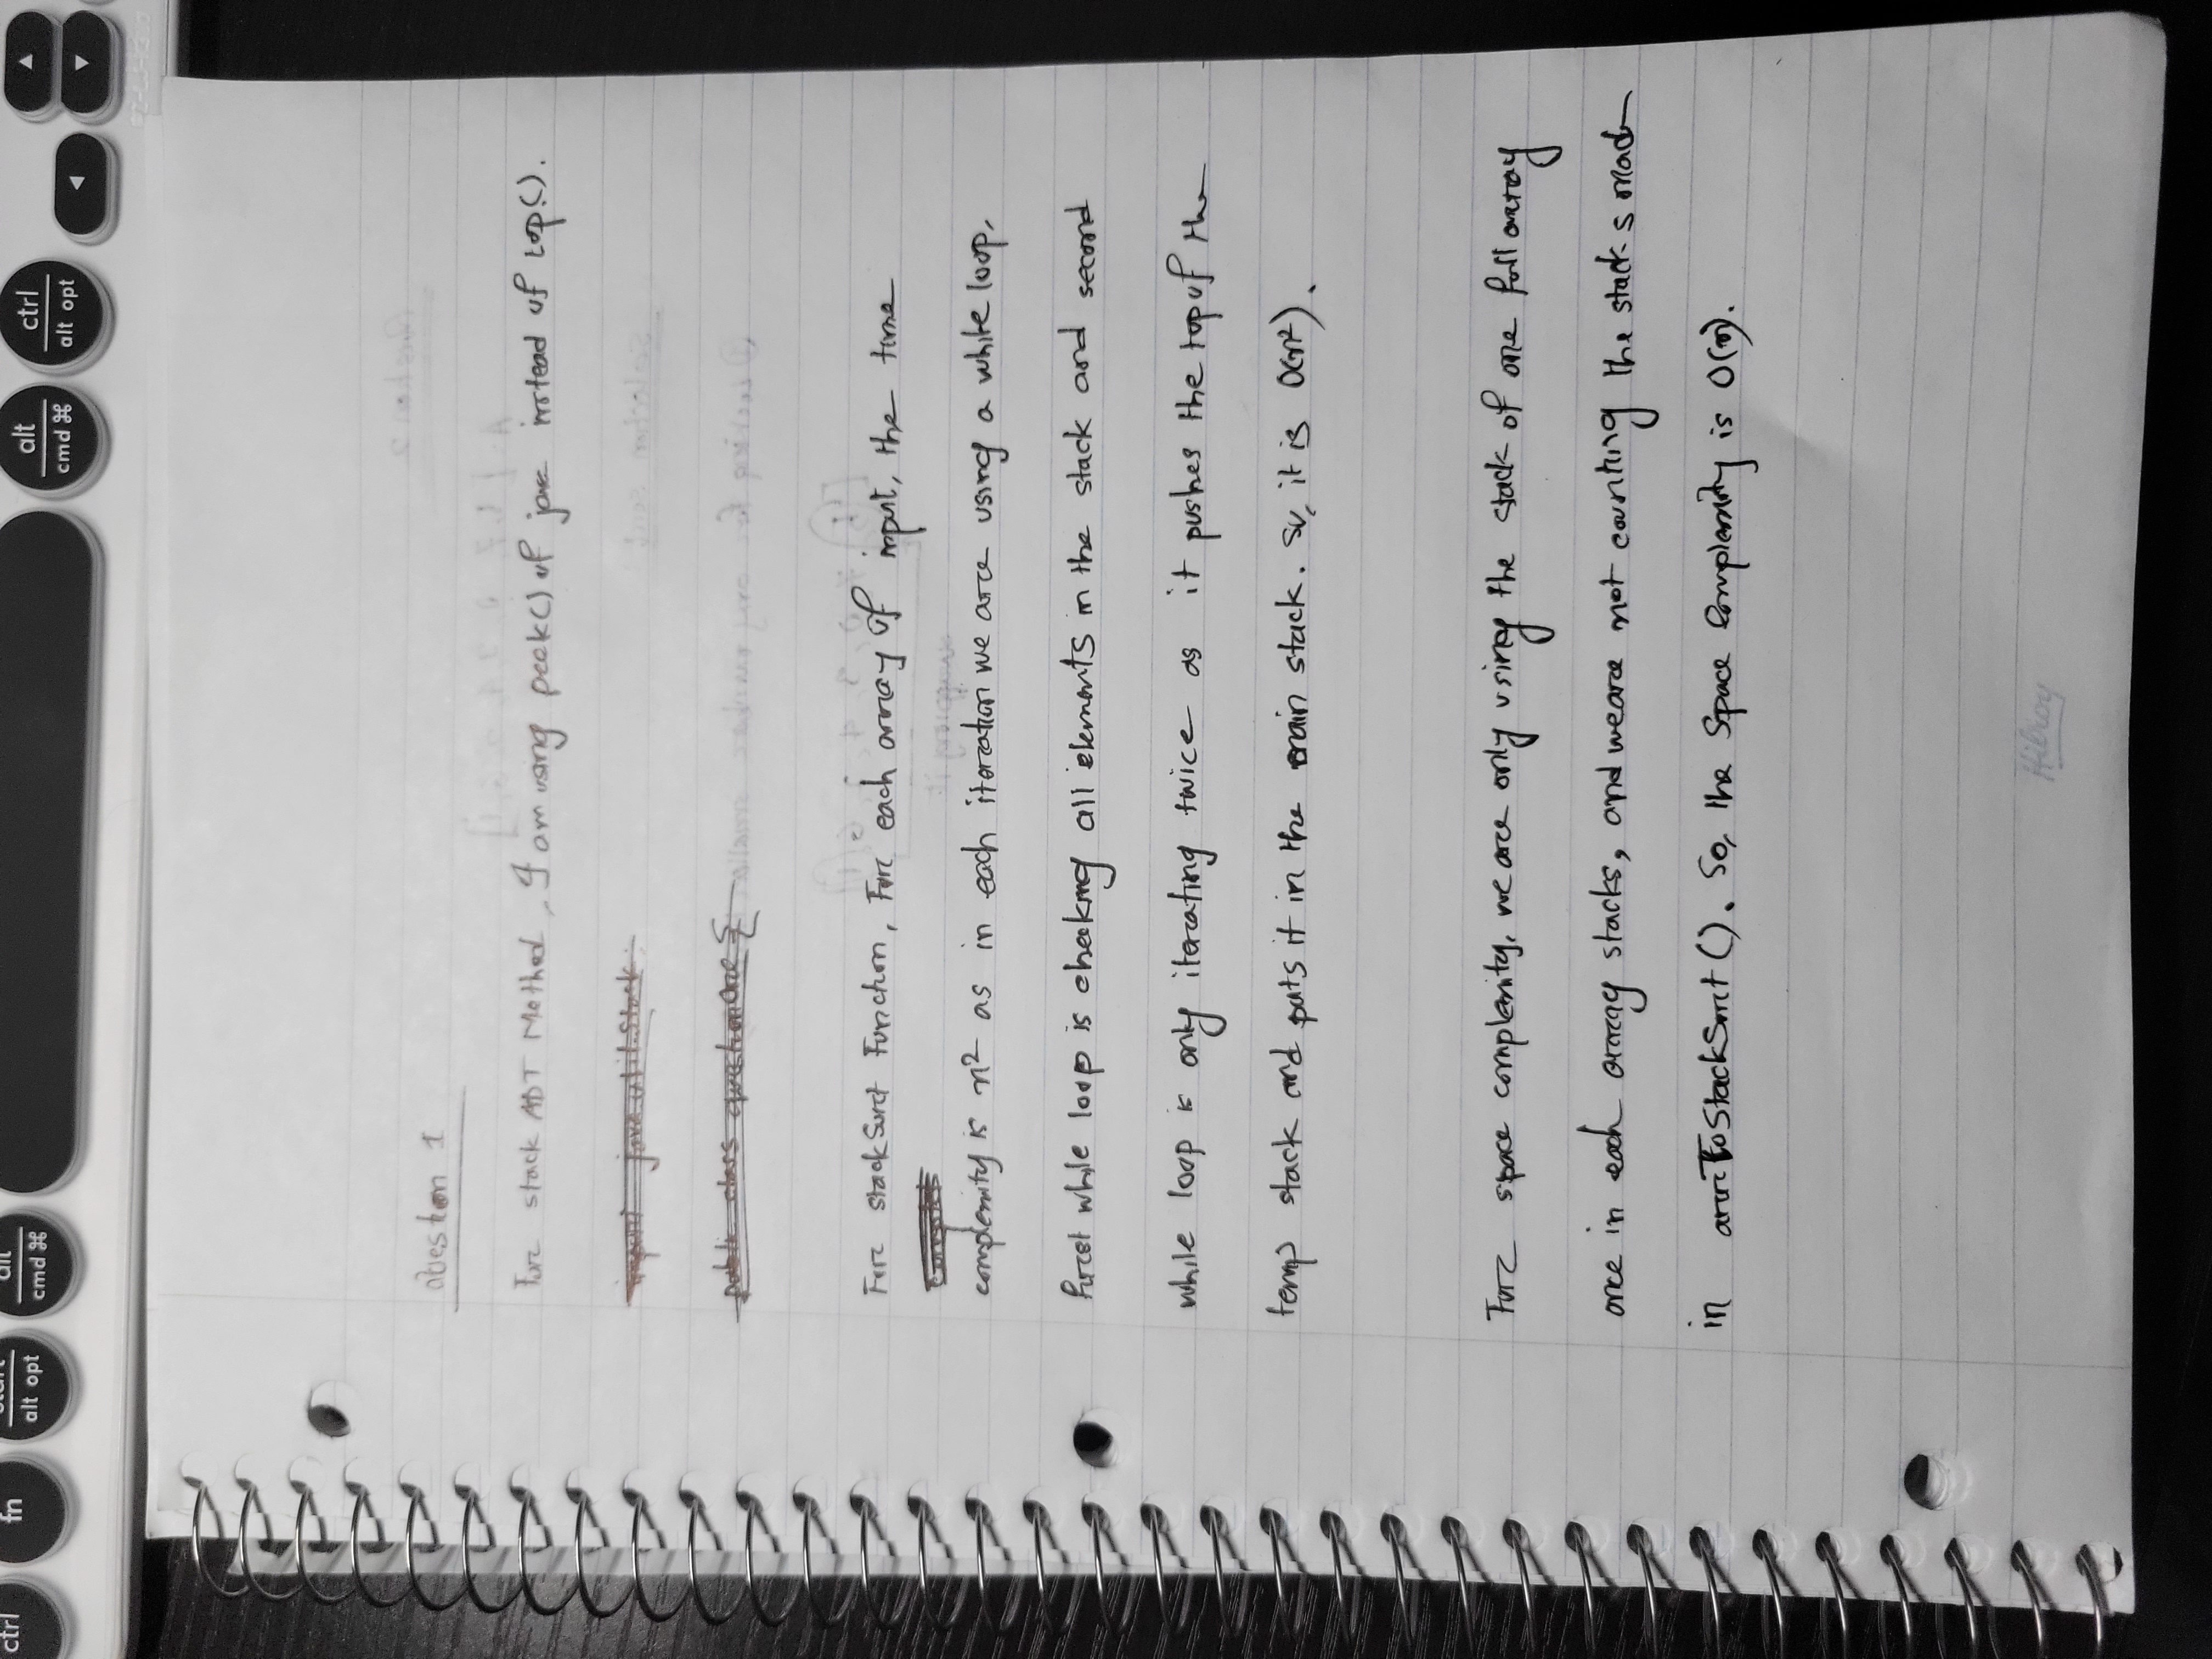 ctrl
fn
start
alt opt
alt
cmd ⌘
alt
cmd ⌘
ctrl
alt opt
Question 1
For stack ADT Method, I am using peek() of java instead of top().
import java.util.Stack;
public class questionOne {
For stackSort Function, For each array of input, the time
complexity is n² as in each iteration we are using a while loop,
first while loop is checking all elements in the stack and second
while loop is only iterating twice as it pushes the top of the
temp stack and puts it in the main stack. So, it is O(n²).
For space complexity, we are only using the stack of one full array
once in each array stacks, and we are not counting the stacks made
in arrToStackSort(). So, the Space Complexity is O(n).
Hilroy